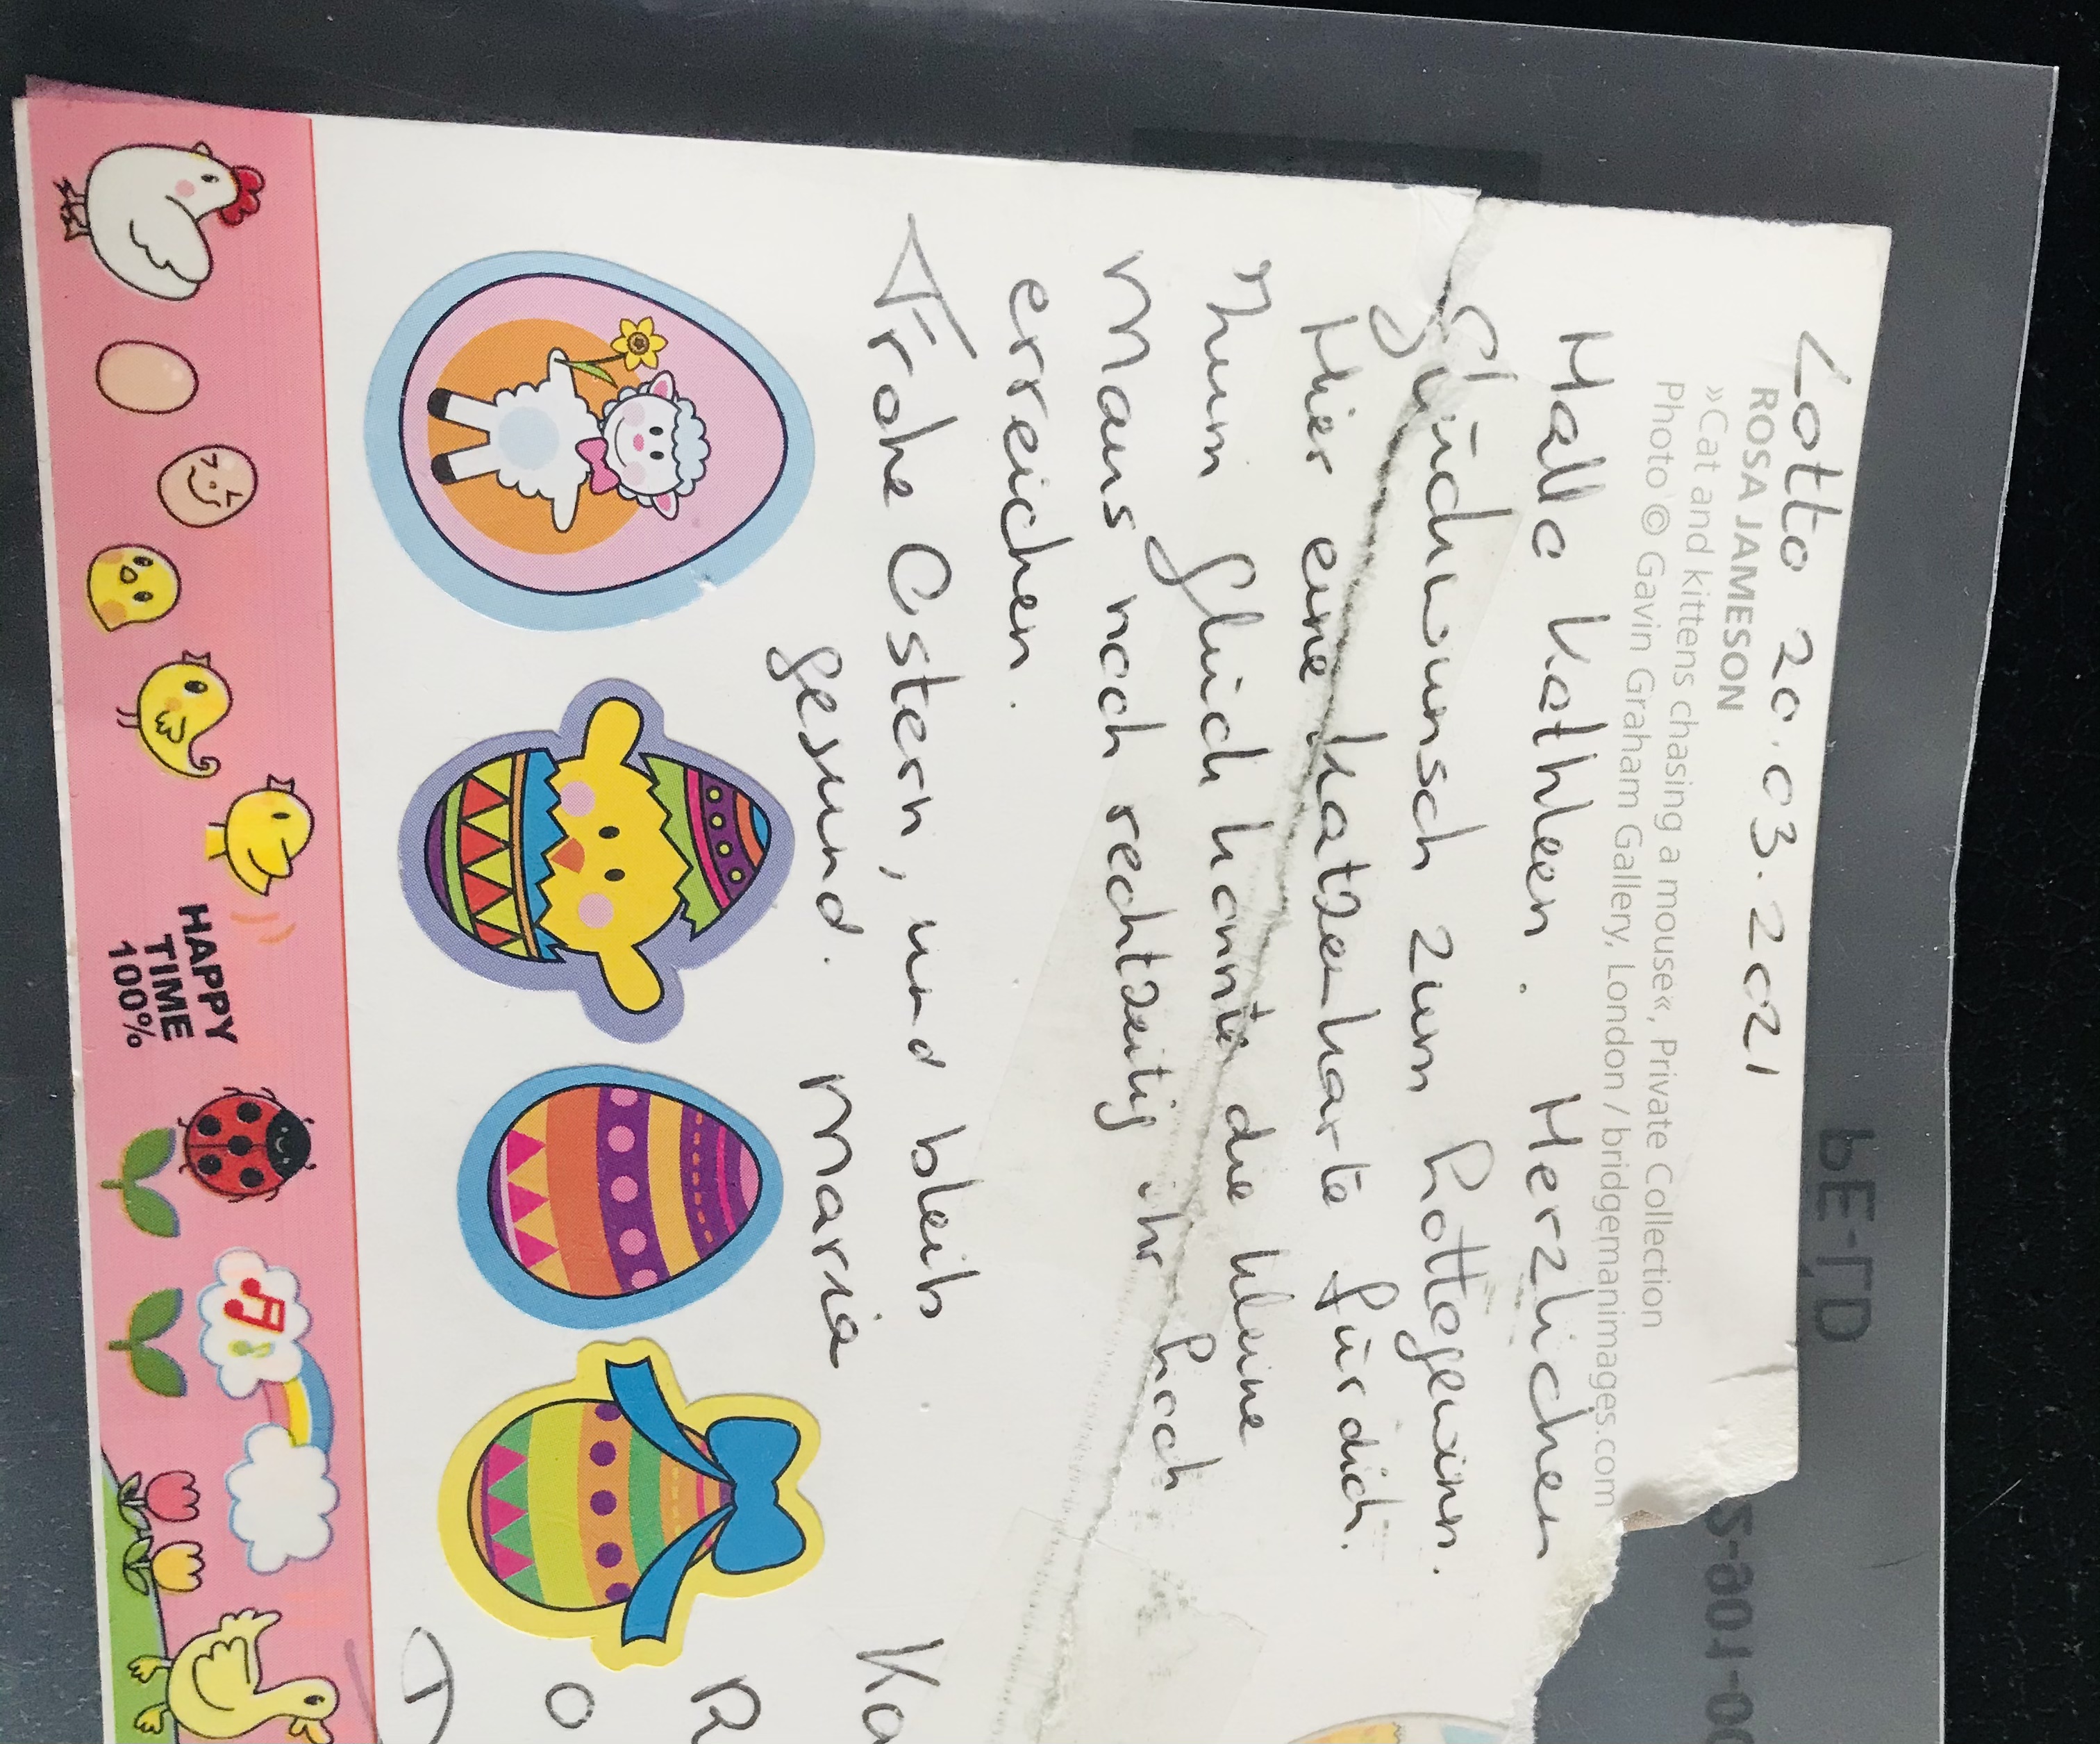 Lotto 20.03.2021
ROSA JAMESON
»Cat and kittens chasing a mouse«, Private Collection
Photo © Gavin Graham Gallery, London / bridgemanimages.com
Hallo Kathleen. Herzlichen
Glückwunsch zum Lottogewinn.
Hier eine Katzenkarte für dich.
Zum Glück konnte die kleine
Maus noch rechtzeitig ihr Loch
erreichen.
Frohe Ostern, und bleib
gesund. Maria
HAPPY
TIME
100%
Ka
R
O